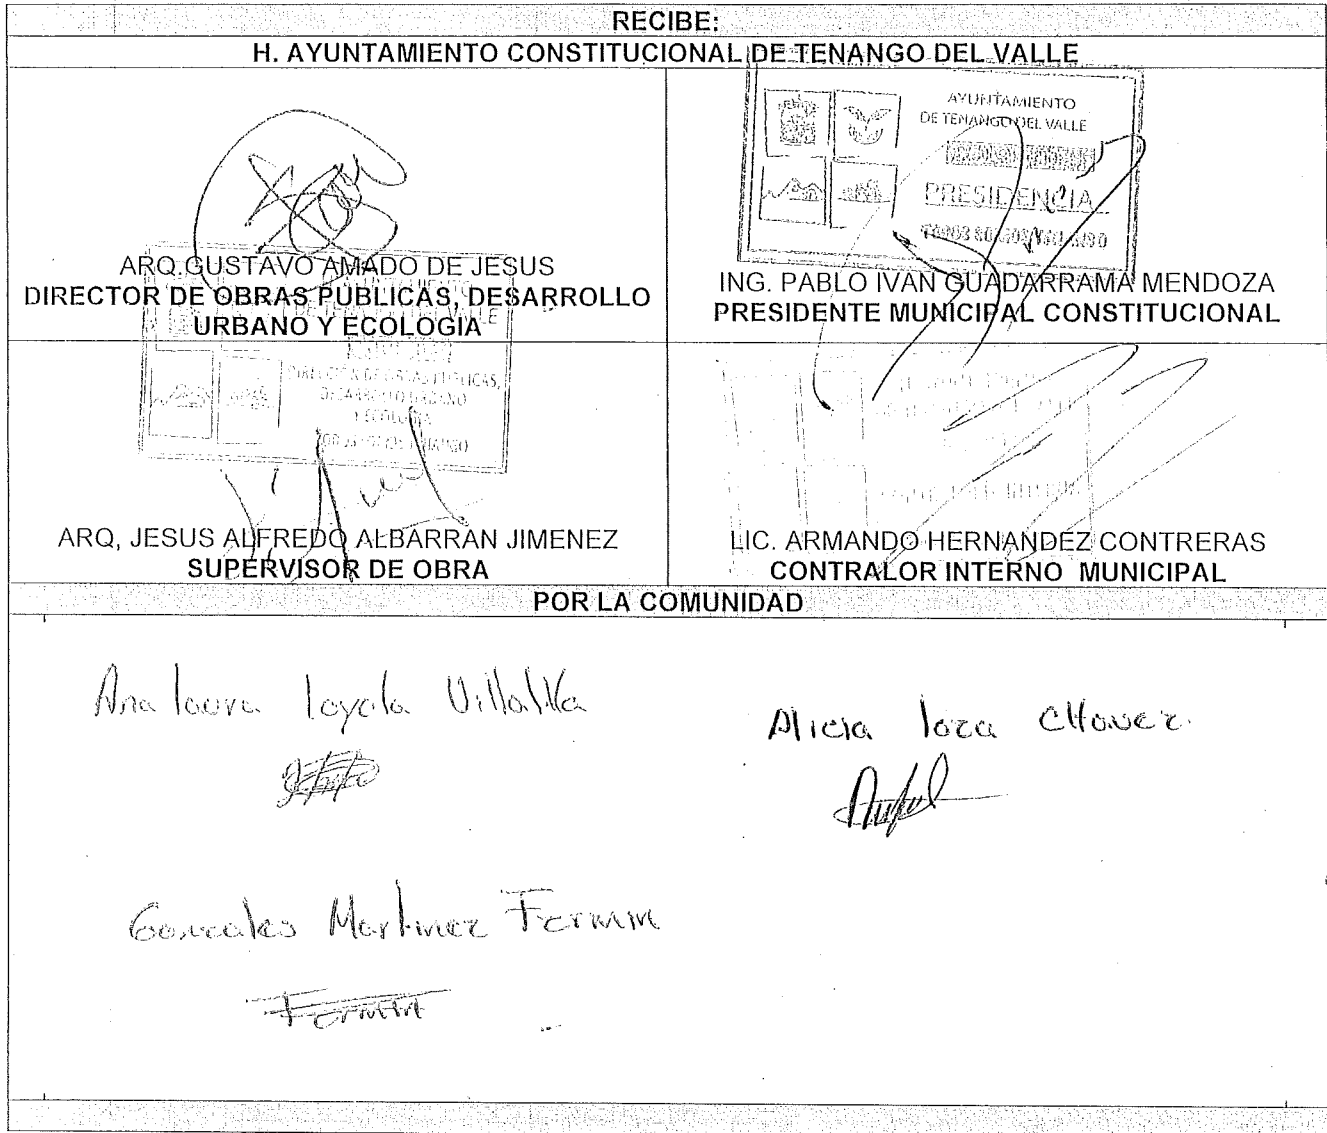 RECIBE:
H. AYUNTAMIENTO CONSTITUCIONAL DE TENANGO DEL VALLE
ARQ.GUSTAVO AMADO DE JESUS
DIRECTOR DE OBRAS PUBLICAS, DESARROLLO
URBANO Y ECOLOGIA
AYUNTAMIENTO
DE TENANGO DEL VALLE
PRESIDENCIA
ING. PABLO IVAN GUADARRAMA MENDOZA
PRESIDENTE MUNICIPAL CONSTITUCIONAL
DIRECCIÓN DE OBRAS PUBLICAS,
DESARROLLO URBANO
Y ECOLOGIA
ARQ, JESUS ALFREDO ALBARRAN JIMENEZ
SUPERVISOR DE OBRA
LIC. ARMANDO HERNANDEZ CONTRERAS
CONTRALOR INTERNO MUNICIPAL
POR LA COMUNIDAD
Ana laura loyola Villalva
Alicia loza CHavez.
Gonzales Martinez Fermin
Fermin